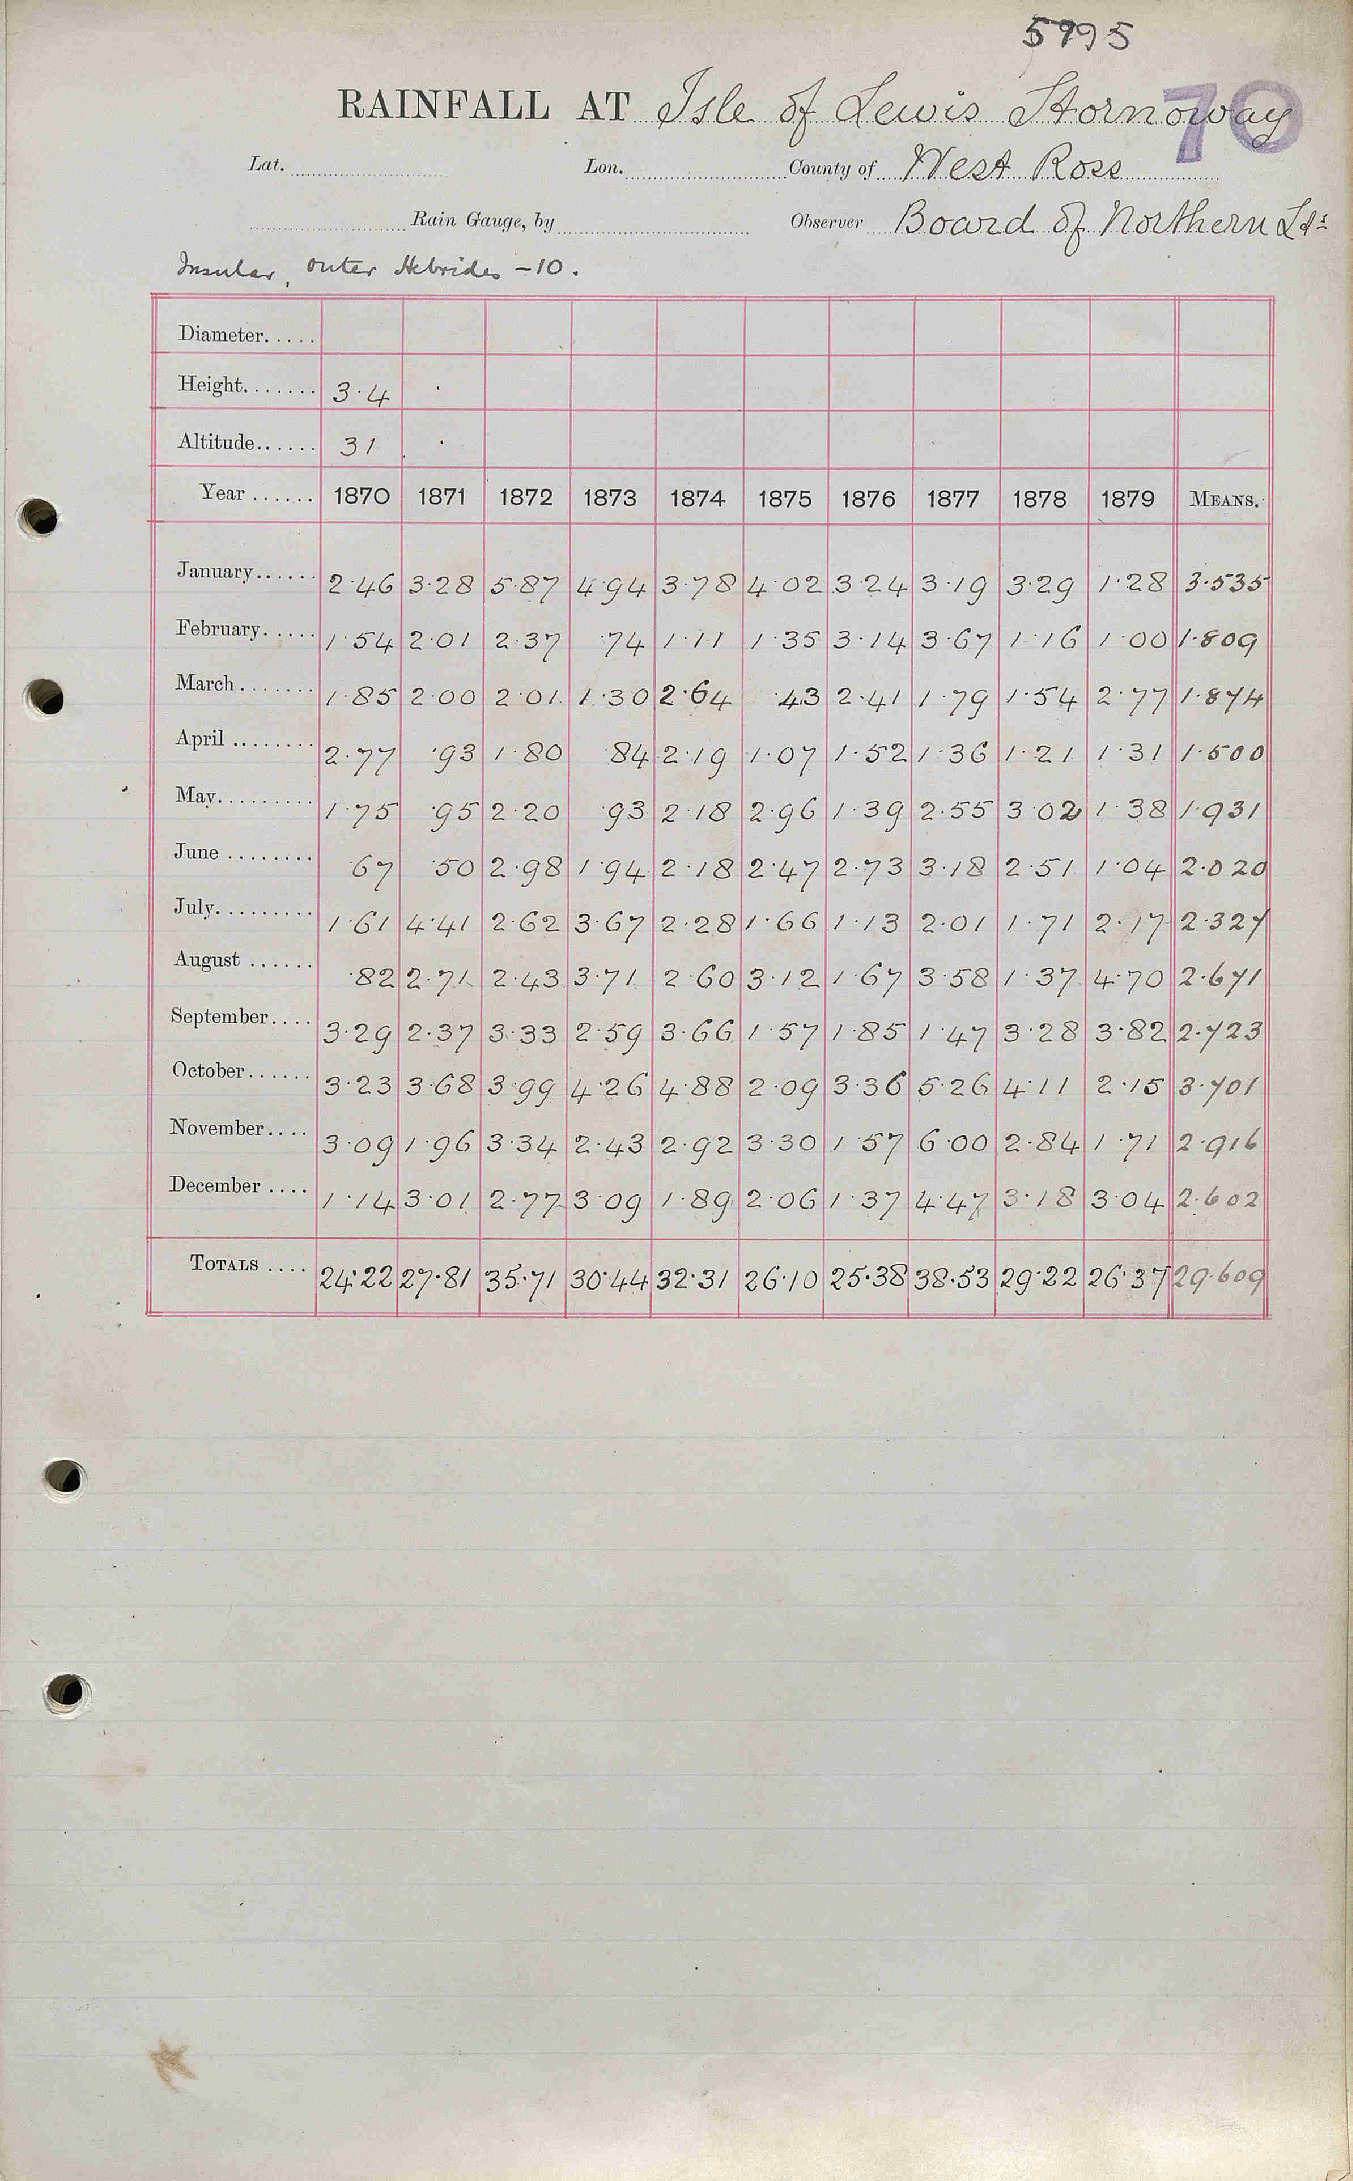 5995
70
RAINFALL AT Isle of Lewis Stornoway
Lat. Lon. County of West Ross
Rain Gauge, by Observer Board of Northern Lts
Insular, Outer Hebrides - 10.
Diameter.....
Height....... 3·4 ·
Altitude...... 31 ·
Year ...... 1870 1871 1872 1873 1874 1875 1876 1877 1878 1879 MEANS.
January...... 2·46 3·28 5·87 4·94 3·78 4·02 3·24 3·19 3·29 1·28 3·535
February..... 1·54 2·01 2·37 ·74 1·11 1·35 3·14 3·67 1·16 1·00 1·809
March....... 1·85 2·00 2·01 1·30 2·64 ·43 2·41 1·79 1·54 2·77 1·874
April ........ 2·77 ·93 1·80 ·84 2·19 1·07 1·52 1·36 1·21 1·31 1·500
May......... 1·75 ·95 2·20 ·93 2·18 2·96 1·39 2·55 3·02 1·38 1·931
June ........ ·67 ·50 2·98 1·94 2·18 2·47 2·73 3·18 2·51 1·04 2·020
July......... 1·61 4·41 2·62 3·67 2·28 1·66 1·13 2·01 1·71 2·17 2·327
August ...... ·82 2·71 2·43 3·71 2·60 3·12 1·67 3·58 1·37 4·70 2·671
September.... 3·29 2·37 3·33 2·59 3·66 1·57 1·85 1·47 3·28 3·82 2·723
October...... 3·23 3·68 3·99 4·26 4·88 2·09 3·36 5·26 4·11 2·15 3·701
November.... 3·09 1·96 3·34 2·43 2·92 3·30 1·57 6·00 2·84 1·71 2·916
December .... 1·14 3·01 2·77 3·09 1·89 2·06 1·37 4·47 3·18 3·04 2·602
TOTALS .... 24·22 27·81 35·71 30·44 32·31 26·10 25·38 38·53 29·22 26·37 29·609